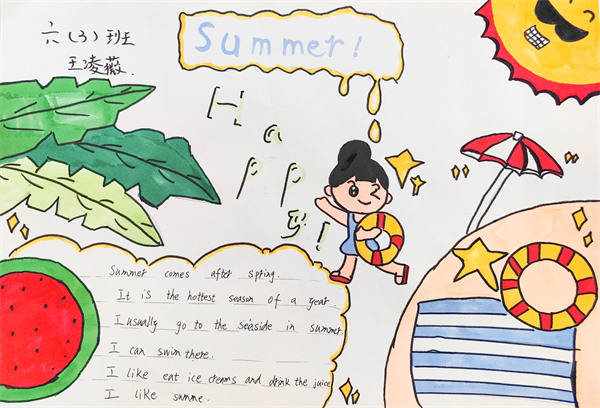 六(3)班
王凌薇.
Summer!
Happy!
Summer comes after spring.
It is the hottest season of a year.
I usually go to the seaside in summer.
I can swim there.
I like eat ice creams and drink the juice
I like summe.